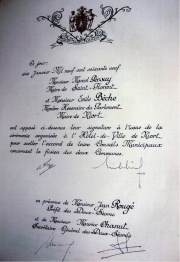 Ce jour,
six Janvier Mil neuf cent soixante neuf
Monsieur Marcel
Maire de Saint-Florent
et Monsieur Emile Bêche
Membre Honoraire du Parlement
Maire de Niort
ont apposé ci-dessous leur signature à l'issue de la
cérémonie organisée à l'Hôtel-de-Ville de Niort,
pour sceller l'accord de leurs Conseils Municipaux
concernant la fusion des deux Communes.
en présence de Monsieur Jean Rougé
Préfet des Deux-Sèvres
et de Monsieur Maurice Chanut
Secrétaire Général des Deux-Sèvres